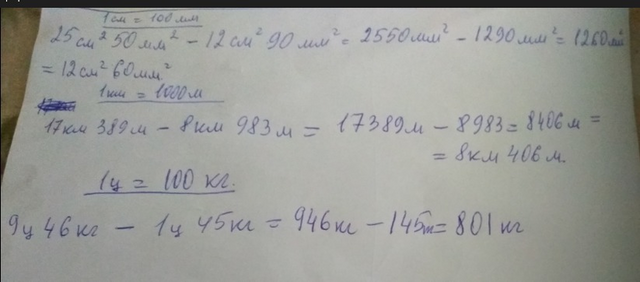 1см = 100мм
25см² 50мм² - 12см² 90мм² = 2550мм² - 1290мм² = 1260мм²
= 12см² 60мм²
1км = 1000м
17км 389м - 8км 983м = 17389м - 8983 = 8406м =
= 8км 406м.
1ц = 100кг.
9ц 46кг - 1ц 45кг = 946кг - 145 = 801кг